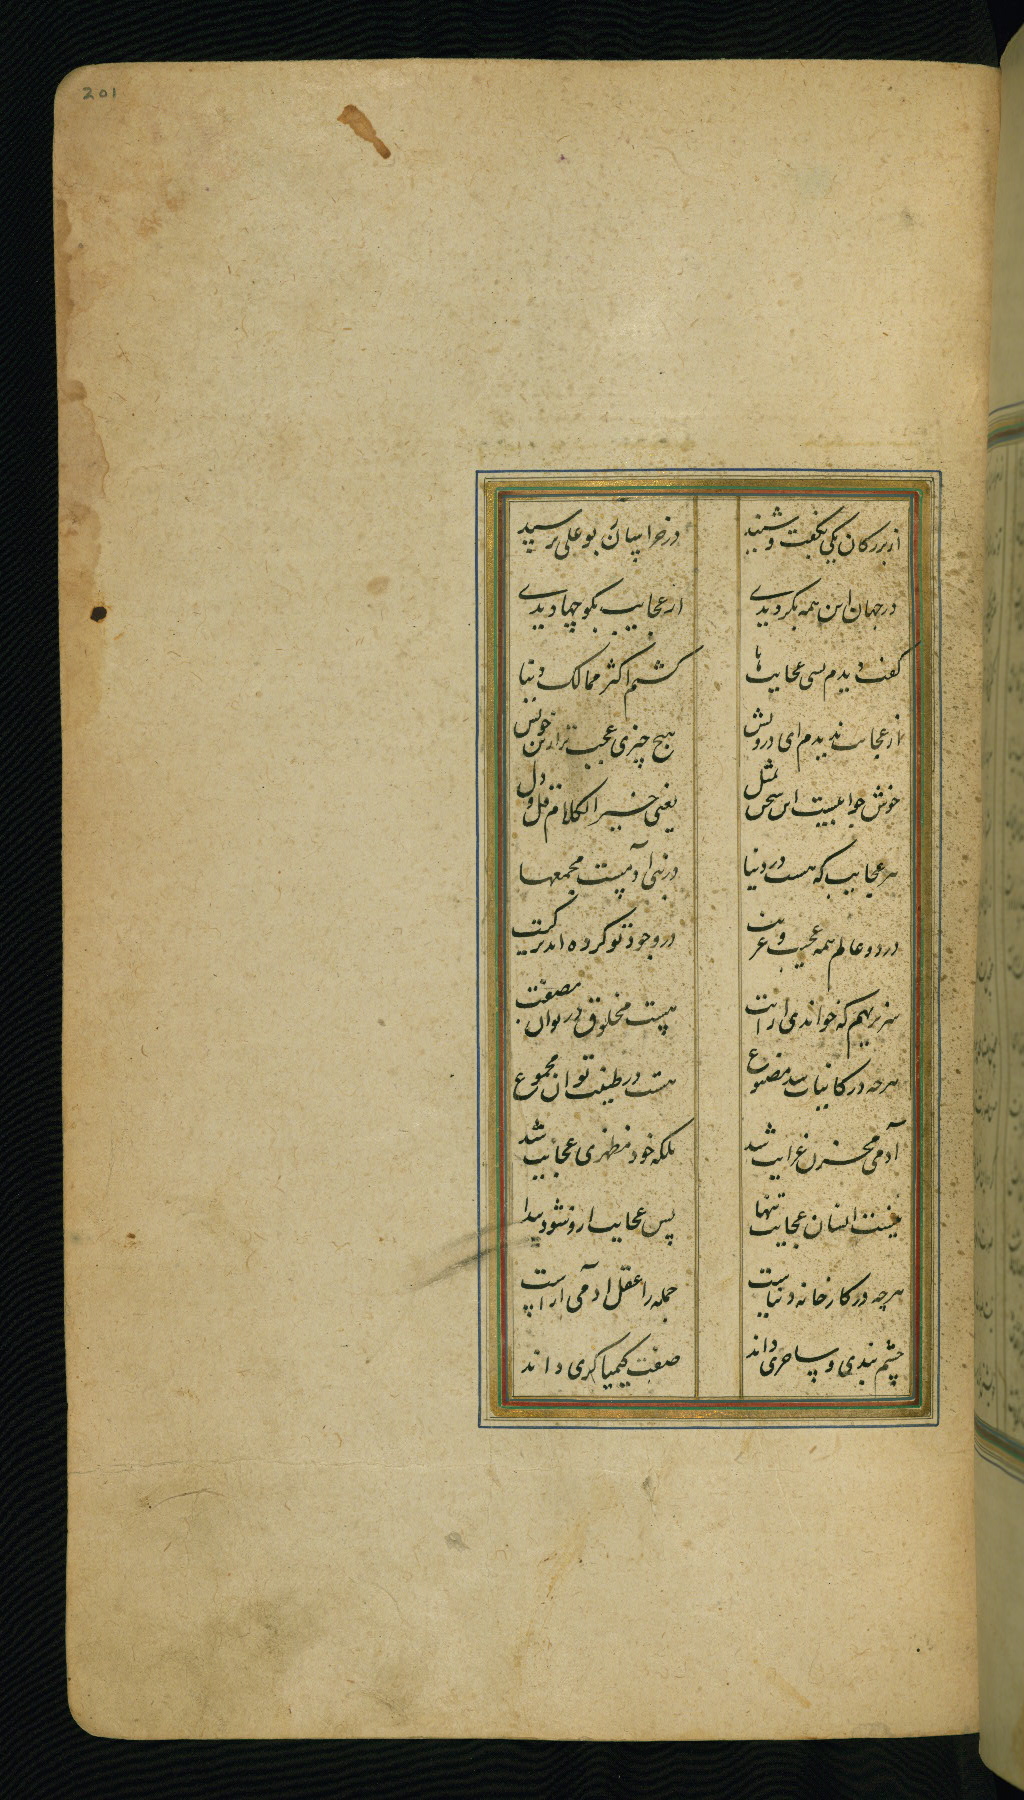 201
از بزرکان یکی بگفت و شنید در خراسان ز بو علی پرسید
در جهان این همه بگردیدی از عجایب بگو چها دیدی
گفت دیدم بسی عجایبها گشتم اکثر ممالک دنیا
از عجایب ندیدم ای درویش هیچ چیزی عجب تر از تن خویش
خوش جوابیست این سخن بمثل یعنی خیر الکلام قل و دل
هر عجایب که هست در دنیا در بنی آدمیست مجمعها
در دو عالم همه عجیب و غریب در وجود تو کرده اند ترکیب
سنریهم که خواندی از آیت هیچ مخلوق در بدان صفت
هرچه در کاینات شد مصنوع هست در طینت تو آن مجموع
آدمی مخزن غرایب شد بلکه خود مظهری عجایب شد
نیست انسان عجایب تنها پس عجایب ازو شود پیدا
هرچه در کارخانه دنیاست جمله را عقل آدمی آراست
چشم بندی و ساحری داند صفت کیمیاگری داند